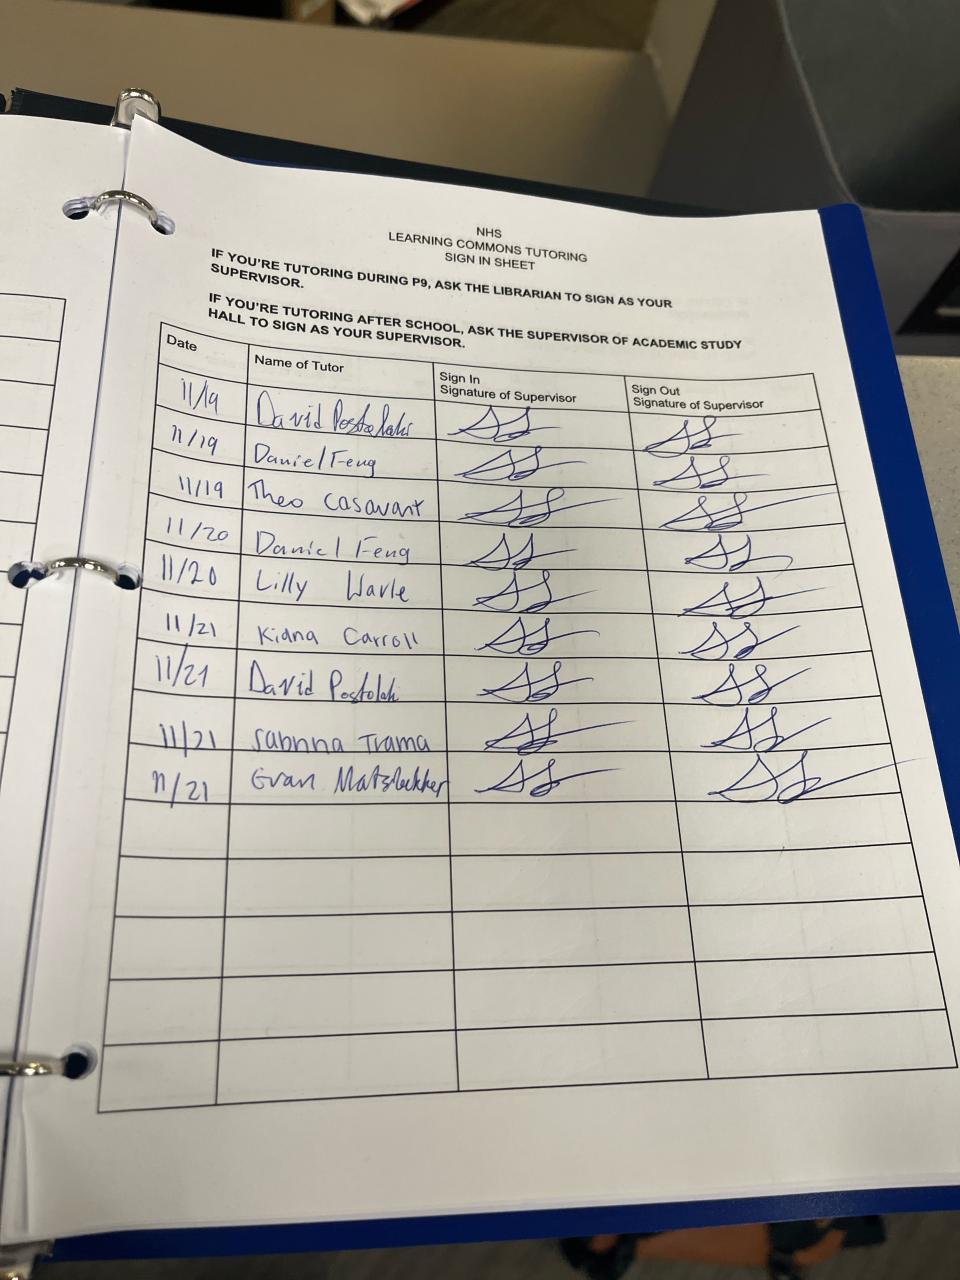 NHS
LEARNING COMMONS TUTORING
SIGN IN SHEET
IF YOU'RE TUTORING DURING P9, ASK THE LIBRARIAN TO SIGN AS YOUR
SUPERVISOR.
IF YOU'RE TUTORING AFTER SCHOOL, ASK THE SUPERVISOR OF ACADEMIC STUDY
HALL TO SIGN AS YOUR SUPERVISOR.
Date Name of Tutor Sign In Signature of Supervisor Sign Out Signature of Supervisor
11/19 David Postolaki
11/19 Daniel Feng
11/19 Theo Casavant
11/20 Daniel Feng
11/20 Lilly
11/21 Kiana Carroll
11/21 David
11/21 Trama
11/21 Evan